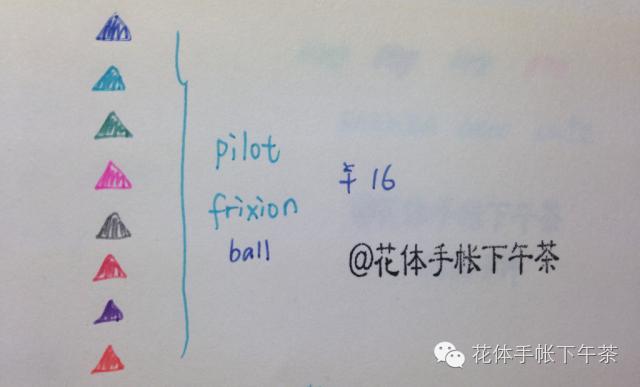 pilot
frixion
ball
¥16
@花体手帐下午茶
花体手帐下午茶